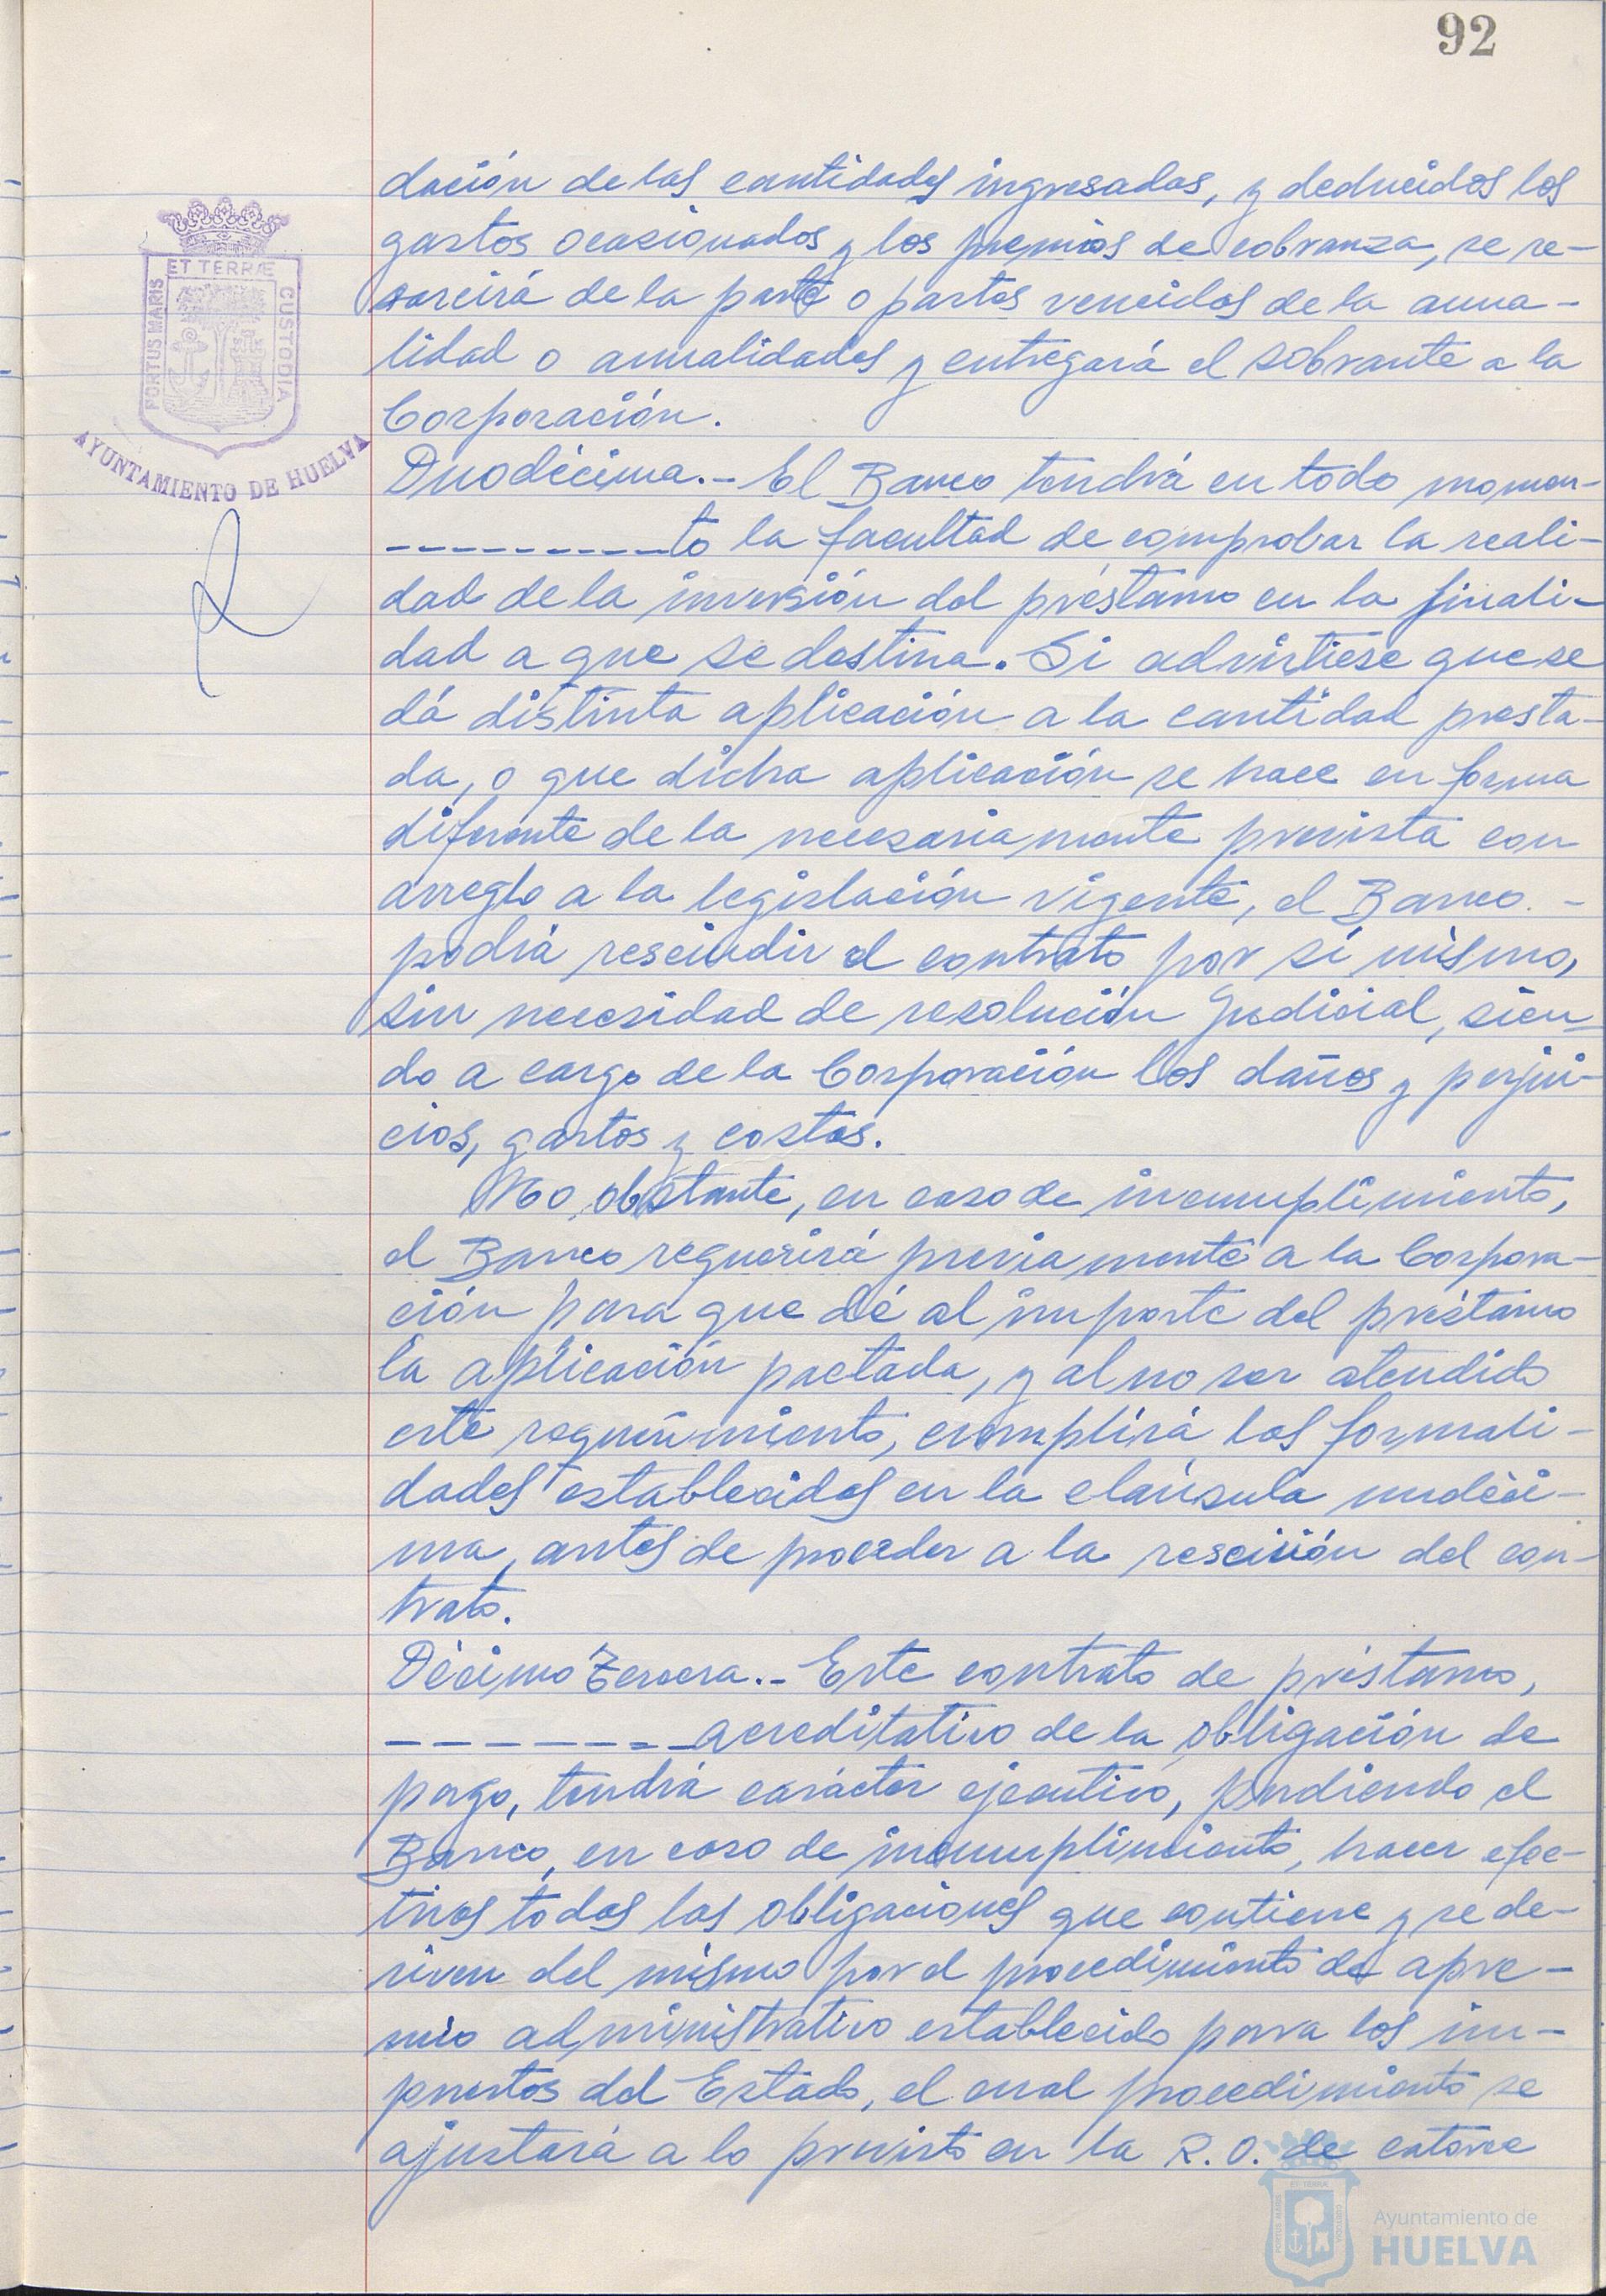 92
dación de las cantidades ingresadas, y deducidos los
gastos ocasionados y los premios de cobranza, se re-
sarcirá de la parte o partes vencidas de la anua-
lidad o anualidades y entregará el sobrante a la
Corporación.
Duodécima.- El Banco tendrá en todo momen-
----------to la facultad de comprobar la reali-
dad de la inversión del préstamo en la finali-
dad a que se destina. Si advirtiese que se
dá distinta aplicación a la cantidad presta-
da, o que dicha aplicación se hace en forma
diferente de la necesariamente prevista con
arreglo a la legislación vigente, el Banco. -
podrá rescindir el contrato por sí mismo,
sin necesidad de resolución Judicial, sien-
do a cargo de la Corporación los daños y perjui-
cios, gastos y costas.
No obstante, en caso de incumplimiento,
el Banco requerirá previamente a la Corpora-
ción para que dé al importe del préstamo
la aplicación pactada, y al no ser atendido
este requerimiento, cumplirá las formali-
dades establecidas en la cláusula undéci-
ma, antes de proceder a la resción del con-
trato.
Décimo Tercera.- Este contrato de préstamo,
--------acreditativo de la obligación de
pago, tendrá carácter ejecutivo, pudiendo el
Banco, en caso de incumplimiento, hacer efec-
tivas todas las obligaciones que contiene y se de-
riven del mismo por el procedimiento de apre-
mio administrativo establecido para los im-
puestos del Estado, el cual procedimiento se
ajustará a lo previsto en la R.O. de catorce
ET TERRÆ
PORTUS MARIS
CUSTODIA
AYUNTAMIENTO DE HUELVA
Ayuntamiento de
HUELVA